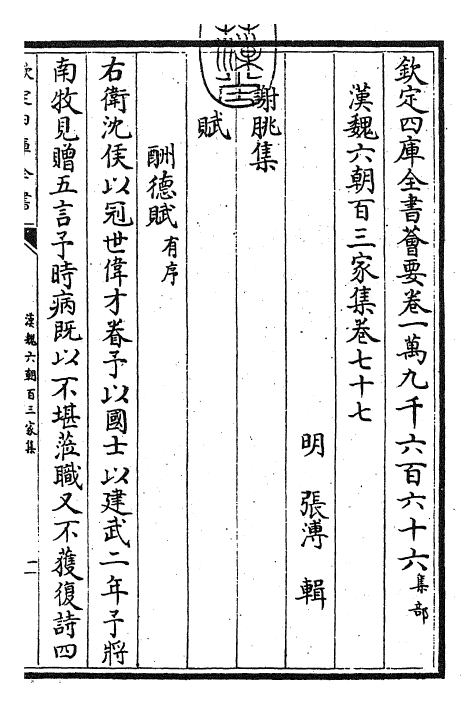 欽定四庫全書薈要卷一萬九千六百六十六集部
漢魏六朝百三家集卷七十七
明 張溥 輯
謝朓集
賦
酬德賦有序
右衛沈侯以冠世偉才眷予以國士以建武二年予將
南牧見贈五言予時病既以不堪蒞職又不獲復詩四
欽定四庫全書
漢魏六朝百三家集